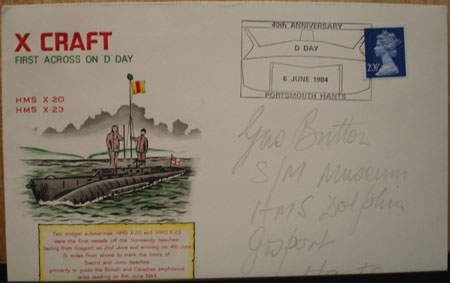 X CRAFT
FIRST ACROSS ON 'D' DAY
HMS X-20
HMS X-23
40th ANNIVERSARY
D DAY
6 JUNE 1984
PORTSMOUTH HANTS
Gus Britton
S/M Museum
HMS Dolphin
Gosport
Hants
Two midget submarines HMS X-20 and HMS X-23
were the first vessels off the Normandy beaches
Sailing from Gosport on 2nd June and arriving on 4th June
1½ miles from shore to mark the limits of
Sword and Juno beaches
primarily to guide the British and Canadian amphibious
tanks landing on 6th June 1944